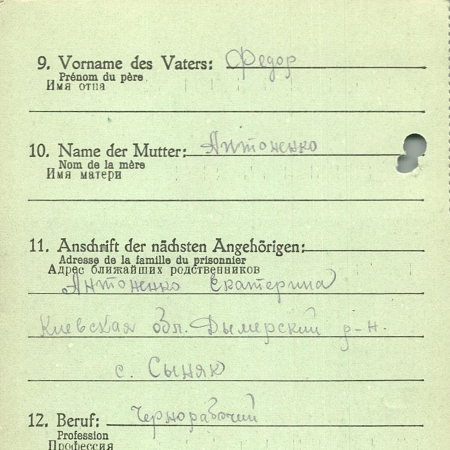 9. Vorname des Vaters: Федор
Prénom du père
Имя отца
10. Name der Mutter: Антоненко
Nom de la mère
Имя матери
11. Anschrift der nächsten Angehörigen:
Adresse de la famille du prisonnier
Адрес ближайших родственников
Антоненко Екатерина
Киевская обл. Дымерский р-н.
с. Сыняк
12. Beruf: Чернорабочий
Profession
Профессия